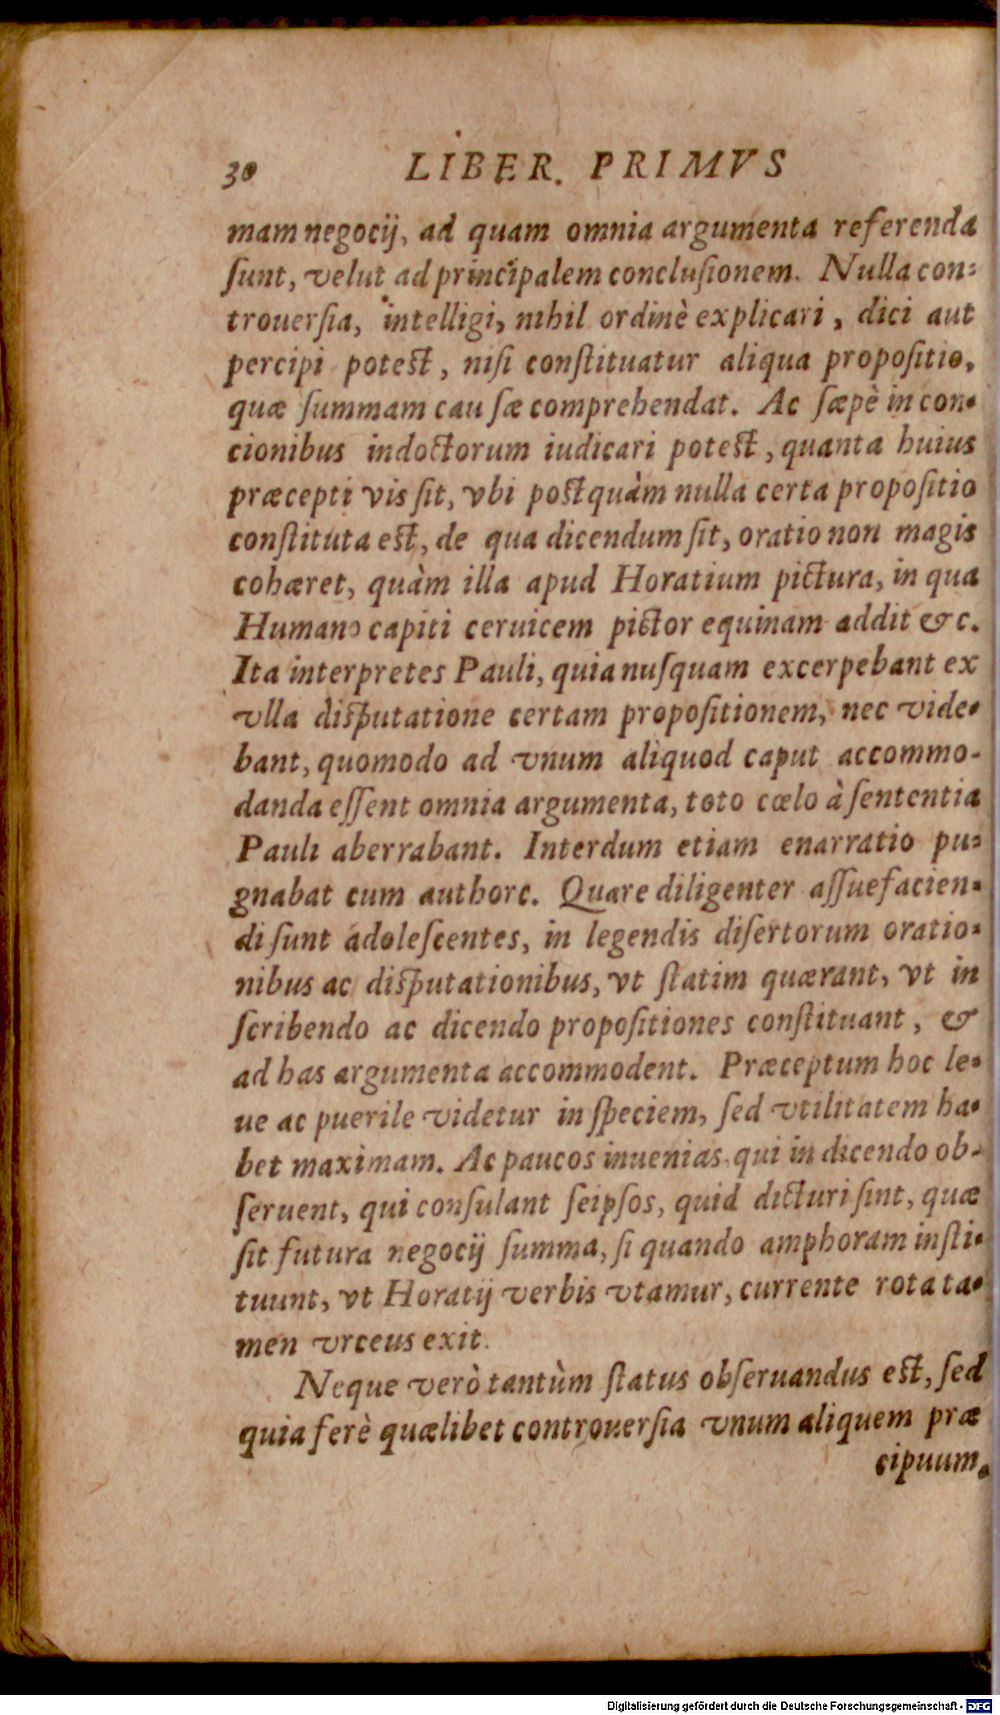 30 LIBER. PRIMVS
mam negocij, ad quam omnia argumenta referenda
ſunt, velut ad principalem concluſionem. Nulla con-
trouerſia, intelligi, nihil ordinè explicari, dici aut
percipi poteſt, niſi conſtituatur aliqua propoſitio,
quæ ſummam cauſæ comprehendat. Ac ſæpè in con-
cionibus indoctorum iudicari poteſt, quanta huius
præcepti vis ſit, vbi poſtquàm nulla certa propoſitio
conſtituta eſt, de qua dicendum ſit, oratio non magis
cohæret, quàm illa apud Horatium pictura, in qua
Humano capiti ceruicem pictor equinam addit &c.
Ita interpretes Pauli, quia nuſquam excerpebant ex
vlla diſputatione certam propoſitionem, nec vide-
bant, quomodo ad vnum aliquod caput accommo-
danda eſſent omnia argumenta, toto cælo à ſententia
Pauli aberrabant. Interdum etiam enarratio pu-
gnabat cum authore. Quare diligenter aſſuefacien-
di ſunt adoleſcentes, in legendis diſertorum oratio-
nibus ac diſputationibus, vt ſtatim quærant, vt in
ſcribendo ac dicendo propoſitiones conſtituant, &
ad has argumenta accommodent. Præceptum hoc le-
ue ac puerile videtur in ſpeciem, ſed vtilitatem ha-
bet maximam. Ac paucos inuenias qui in dicendo ob-
ſeruent, qui conſulant ſeipſos, quid dicturi ſint, quæ
ſit futura negocij ſumma, ſi quando amphoram inſti-
tuunt, vt Horatij verbis vtamur, currente rota ta-
men vrceus exit.
Neque verò tantùm ſtatus obſeruandus eſt, ſed
quia ferè quælibet controuerſia vnum aliquem præ
cipuum
Digitalisierung gefördert durch die Deutsche Forschungsgemeinschaft - DFG